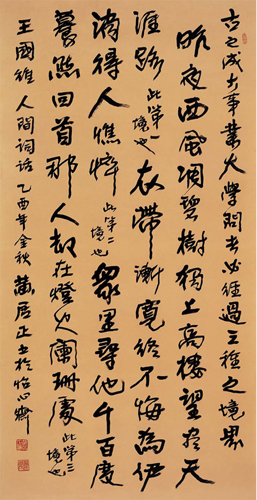 古之成大事業大學問者必經過三種之境界
昨夜西風凋碧樹獨上高樓望盡天
涯路此第一境也衣帶漸寬終不悔為伊
消得人憔悴此第二境也眾里尋他千百度
驀然回首那人却在燈火闌珊處此第三境也
王國維人間詞話乙酉年金秋居正書於怡心齋